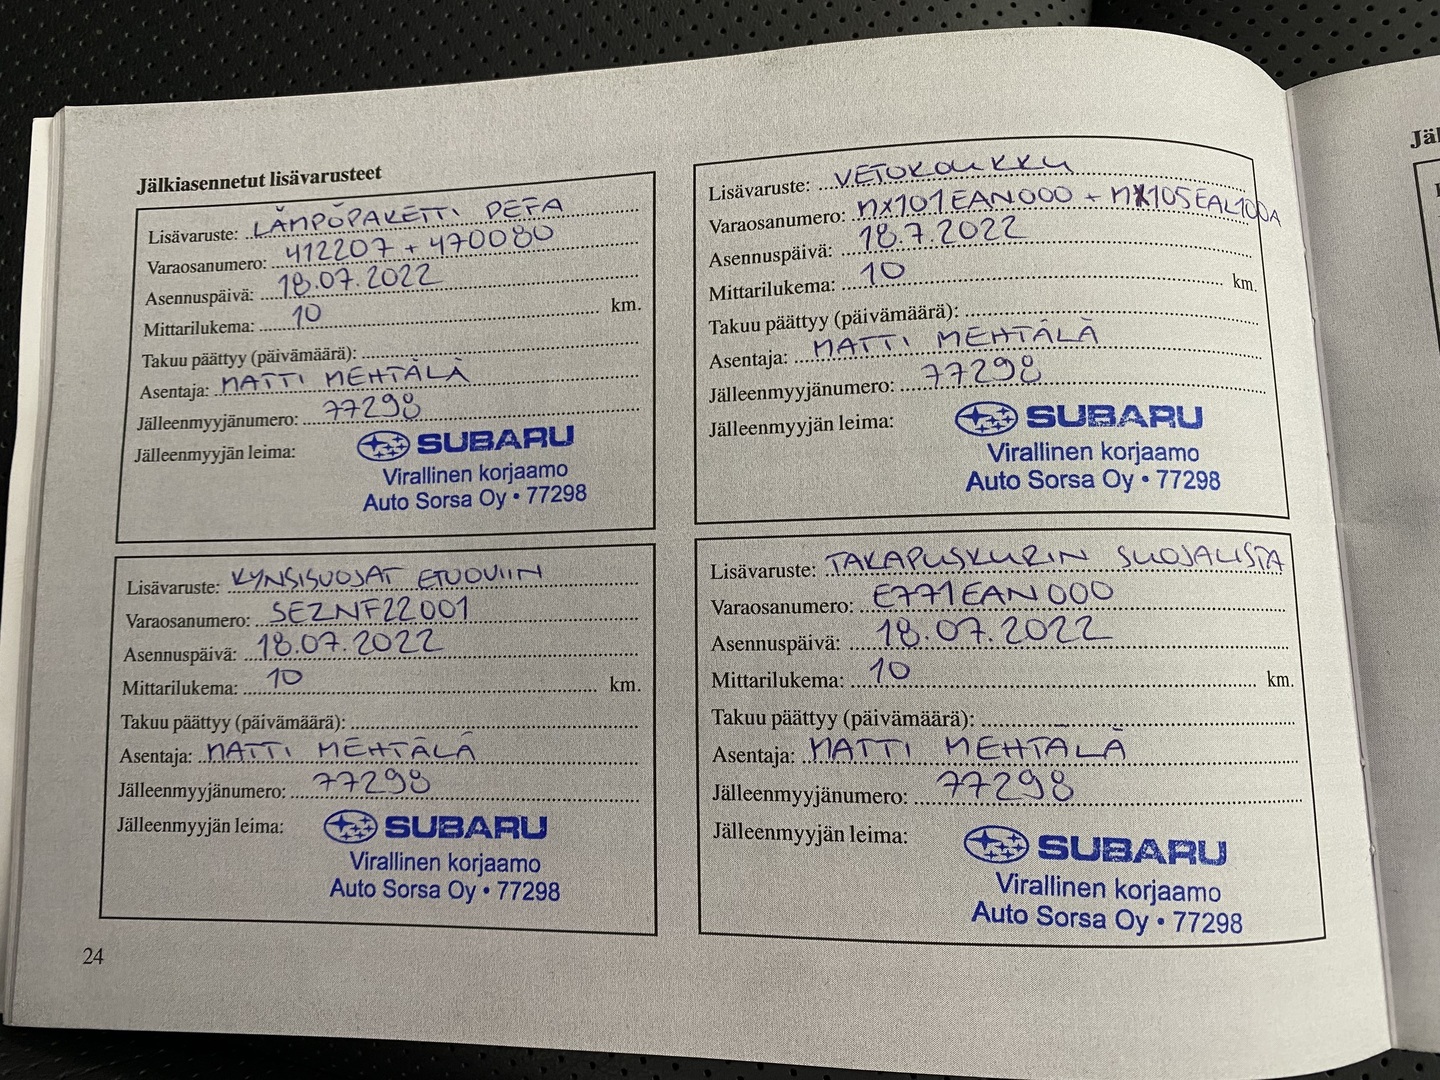 Jälkiasennetut lisävarusteet
Lisävaruste: LÄMPÖPAKETTI DEFA
Varaosanumero: 412207 + 470080
Asennuspäivä: 18.07.2022
Mittarilukema: 10 km.
Takuu päättyy (päivämäärä):
Asentaja: MATTI MEHTÄLÄ
Jälleenmyyjänumero: 77298
Jälleenmyyjän leima: SUBARU
Virallinen korjaamo
Auto Sorsa Oy • 77298
Lisävaruste: KYNSISUOJAT ETUOVIIN
Varaosanumero: SEZNF22001
Asennuspäivä: 18.07.2022
Mittarilukema: 10 km.
Takuu päättyy (päivämäärä):
Asentaja: MATTI MEHTÄLÄ
Jälleenmyyjänumero: 77298
Jälleenmyyjän leima: SUBARU
Virallinen korjaamo
Auto Sorsa Oy • 77298
24
Lisävaruste: VETOKOUKKU
Varaosanumero: MX101EAN000 + MX105EAL100A
Asennuspäivä: 18.7.2022
Mittarilukema: 10 km.
Takuu päättyy (päivämäärä):
Asentaja: MATTI MEHTÄLÄ
Jälleenmyyjänumero: 77298
Jälleenmyyjän leima: SUBARU
Virallinen korjaamo
Auto Sorsa Oy • 77298
Lisävaruste: TAKAPUSKURIN SUOJALISTA
Varaosanumero: E771EAN000
Asennuspäivä: 18.07.2022
Mittarilukema: 10 km.
Takuu päättyy (päivämäärä):
Asentaja: MATTI MEHTÄLÄ
Jälleenmyyjänumero: 77298
Jälleenmyyjän leima: SUBARU
Virallinen korjaamo
Auto Sorsa Oy • 77298